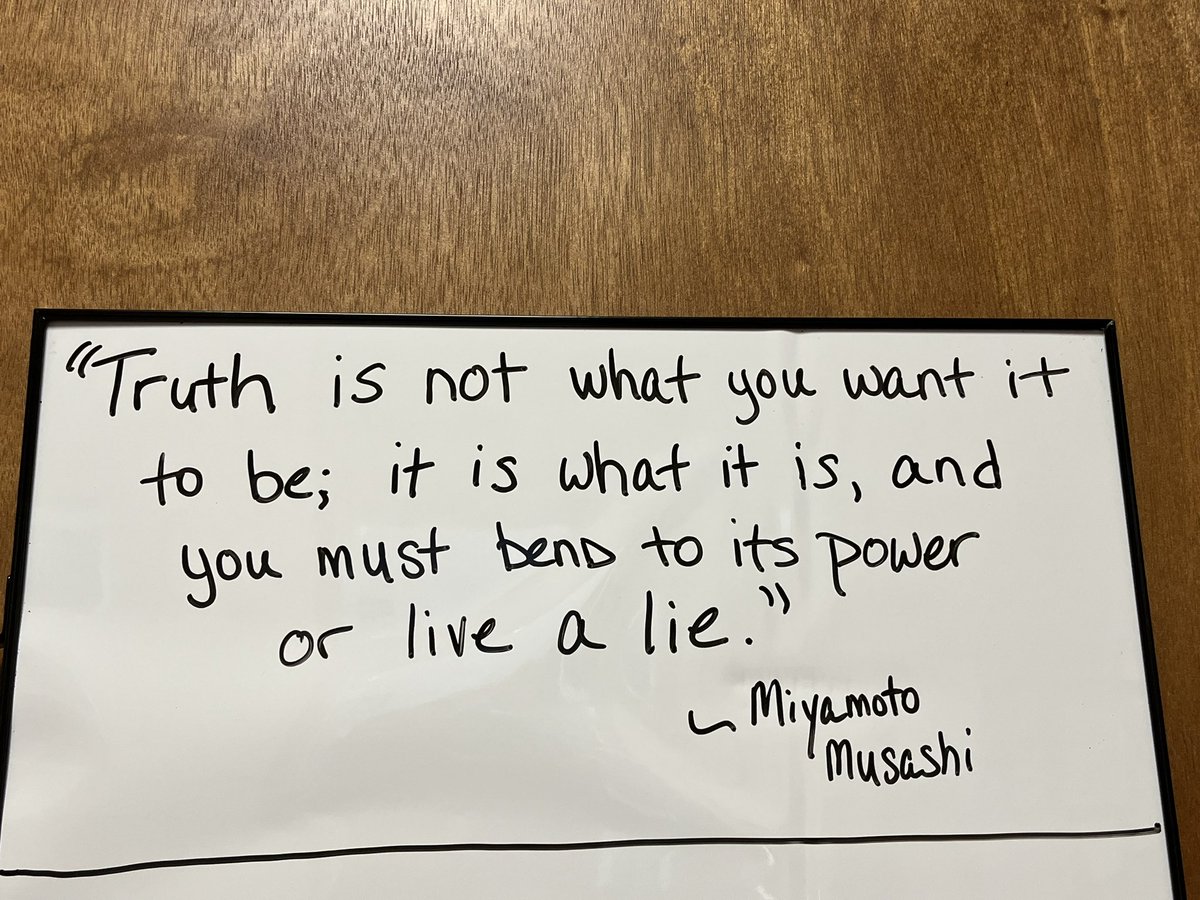 "Truth is not what you want it
to be; it is what it is, and
you must bend to its power
or live a lie."
~ Miyamoto
Musashi